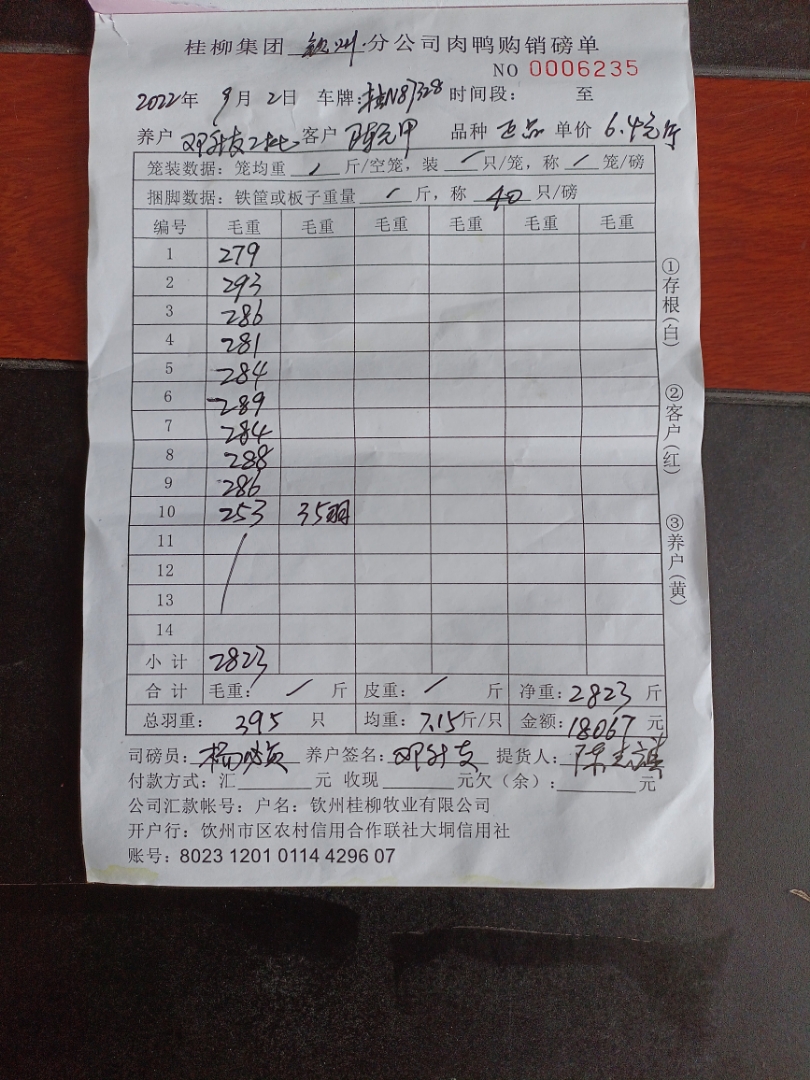 桂柳集团 钦州 分公司肉鸭购销磅单
NO 0006235
2022年 9月 2日 车牌:桂N87328 时间段: 至
养户 邓升友二批 客户 陈元甲 品种 正品 单价 6.4元/斤
笼装数据: 笼均重 / 斤/空笼, 装 / 只/笼, 称 / 笼/磅
捆脚数据: 铁筐或板子重量 / 斤, 称 40 只/磅
编号 毛重 毛重 毛重 毛重 毛重 毛重
1 279
2 293
3 286
4 281
5 284
6 289
7 284
8 288
9 286
10 253 35羽
11
12
13
14
小计 2823
合计 毛重: / 斤 皮重: / 斤 净重: 2823 斤
总羽重: 395 只 均重: 7.15斤/只 金额: 18067 元
司磅员: 养户签名: 邓升友 提货人: 陈
付款方式: 汇 元 收现 元欠(余): 元
公司汇款帐号: 户名: 钦州桂柳牧业有限公司
开户行: 钦州市区农村信用合作联社大垌信用社
账号: 8023 1201 0114 4296 07
①存根(白)
②客户(红)
③养户(黄)